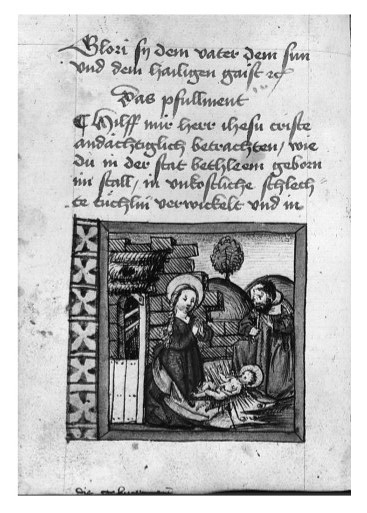 Glori sy dem vater dem sun
vnd dem hailigen gaist rc
Das pfullment
Hilff mir herr ihesu criste
andächtiglich betrachten / wie
du in der stat bethleem geborn
im stall / in vnkostliche schlech
te tüchlin verwickelt vnd in
die